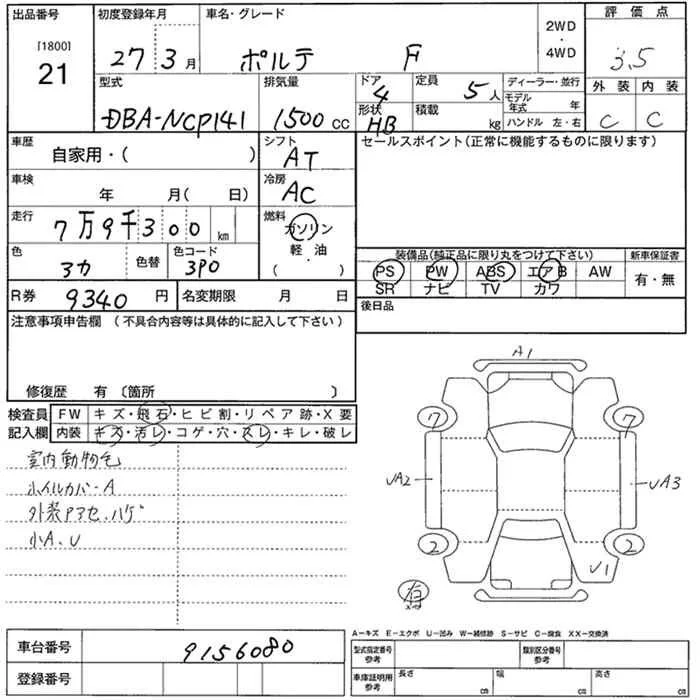 出品番号 初度登録年月 車名・グレード 2WD・4WD 評価点
[1800]
21 27 3月 ポルテ F 3.5
型式 排気量 ドア 定員 ディーラー・並行 外装 内装
DBA-NCP141 1500cc 4 5人 モデル年式 年 C C
形状 積載 kg ハンドル 左・右
HB
車歴 自家用・( ) シフト AT セールスポイント(正常に機能するものに限ります)
車検 年 月( 日) 冷房 AC
走行 7万9千300km 燃料 ガソリン 軽・油 ・( )
色 色替 色コード 3P0
装備品(純正品に限り丸をつけて下さい) 新車保証書
PS PW ABS エアB AW 有・無
SR ナビ TV カワ
R券 9340円 名変期限 月 日 後日品
注意事項申告欄 (不具合内容等は具体的に記入して下さい)
修復歴 有 〔箇所 〕
検査員 FW キズ・飛石・ヒビ割・リペア跡・X要
記入欄 内装 キズ・汚レ・コゲ・穴・スレ・キレ・破レ
室内動物毛
ホイルカバーA
小A、U
A1
7 7
UA2 UA3
2 2
U1
A-キズ E-エクボ U-凹み W-補修跡 S-サビ C-腐食 XX-交換済
車台番号 9156080 型式指定番号 参考 類別区分番号 参考
登録番号 車庫証明用 参考 長さ cm 幅 cm 高さ cm